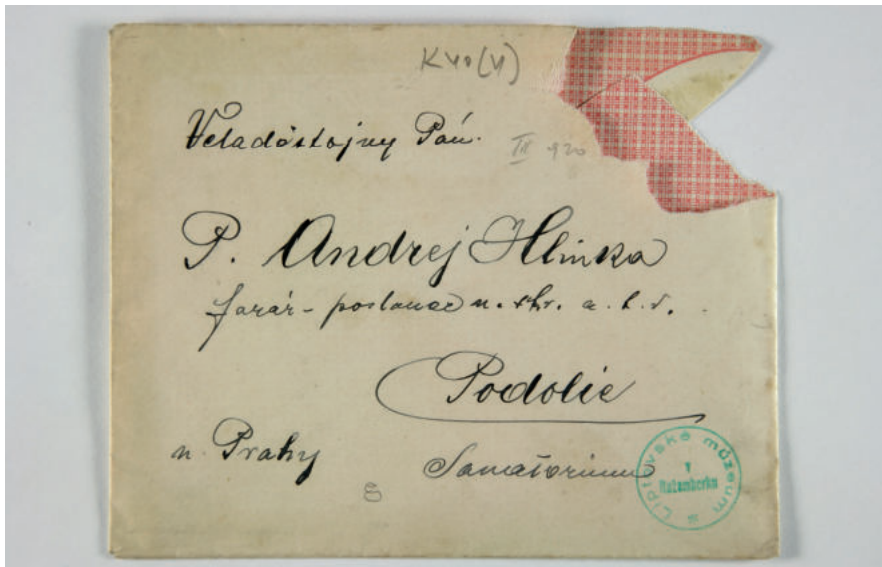 K40(4)
Veladôstojny Pán.
IX 920
P. Andrej Hlinka
farár - poslanec n. shr. a. t. d.
Podolie
u Prahy
Sanatorium
8
Liptovské múzeum
v
Ružomberku